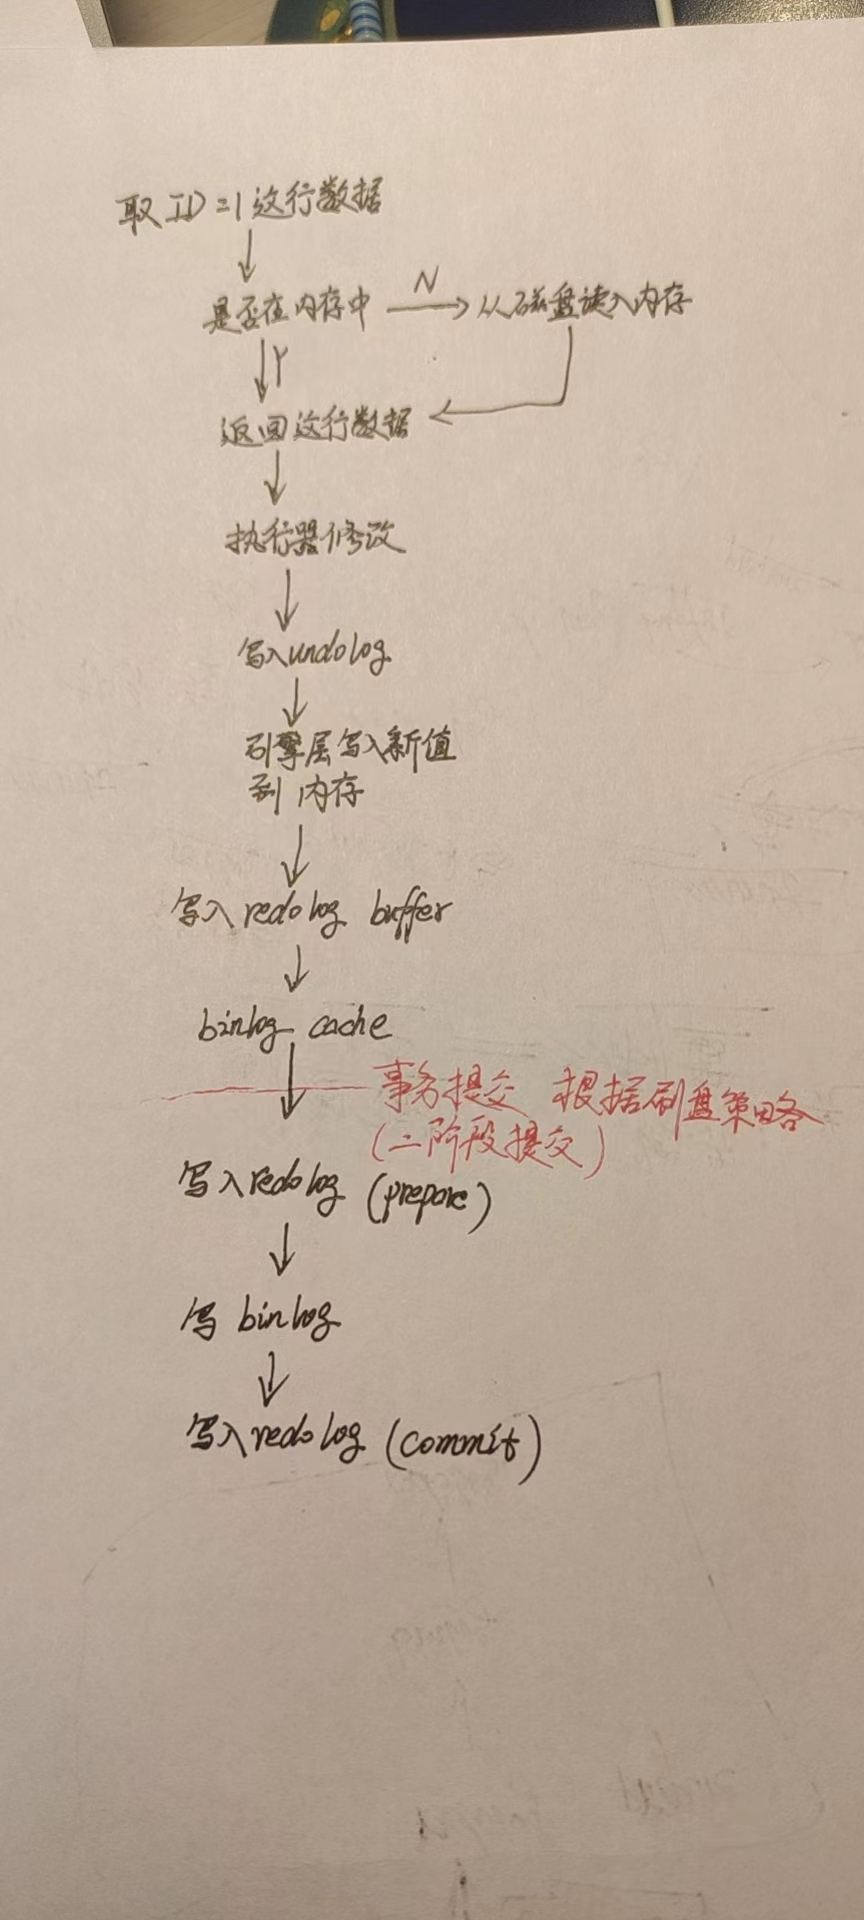 取ID=1这行数据
是否在内存中
N
从磁盘读入内存
Y
返回这行数据
执行器修改
写入undolog
引擎层写入新值
到内存
写入redolog buffer
binlog cache
事务提交 根据刷盘策略
(二阶段提交)
写入redolog (prepare)
写binlog
写入redolog (commit)